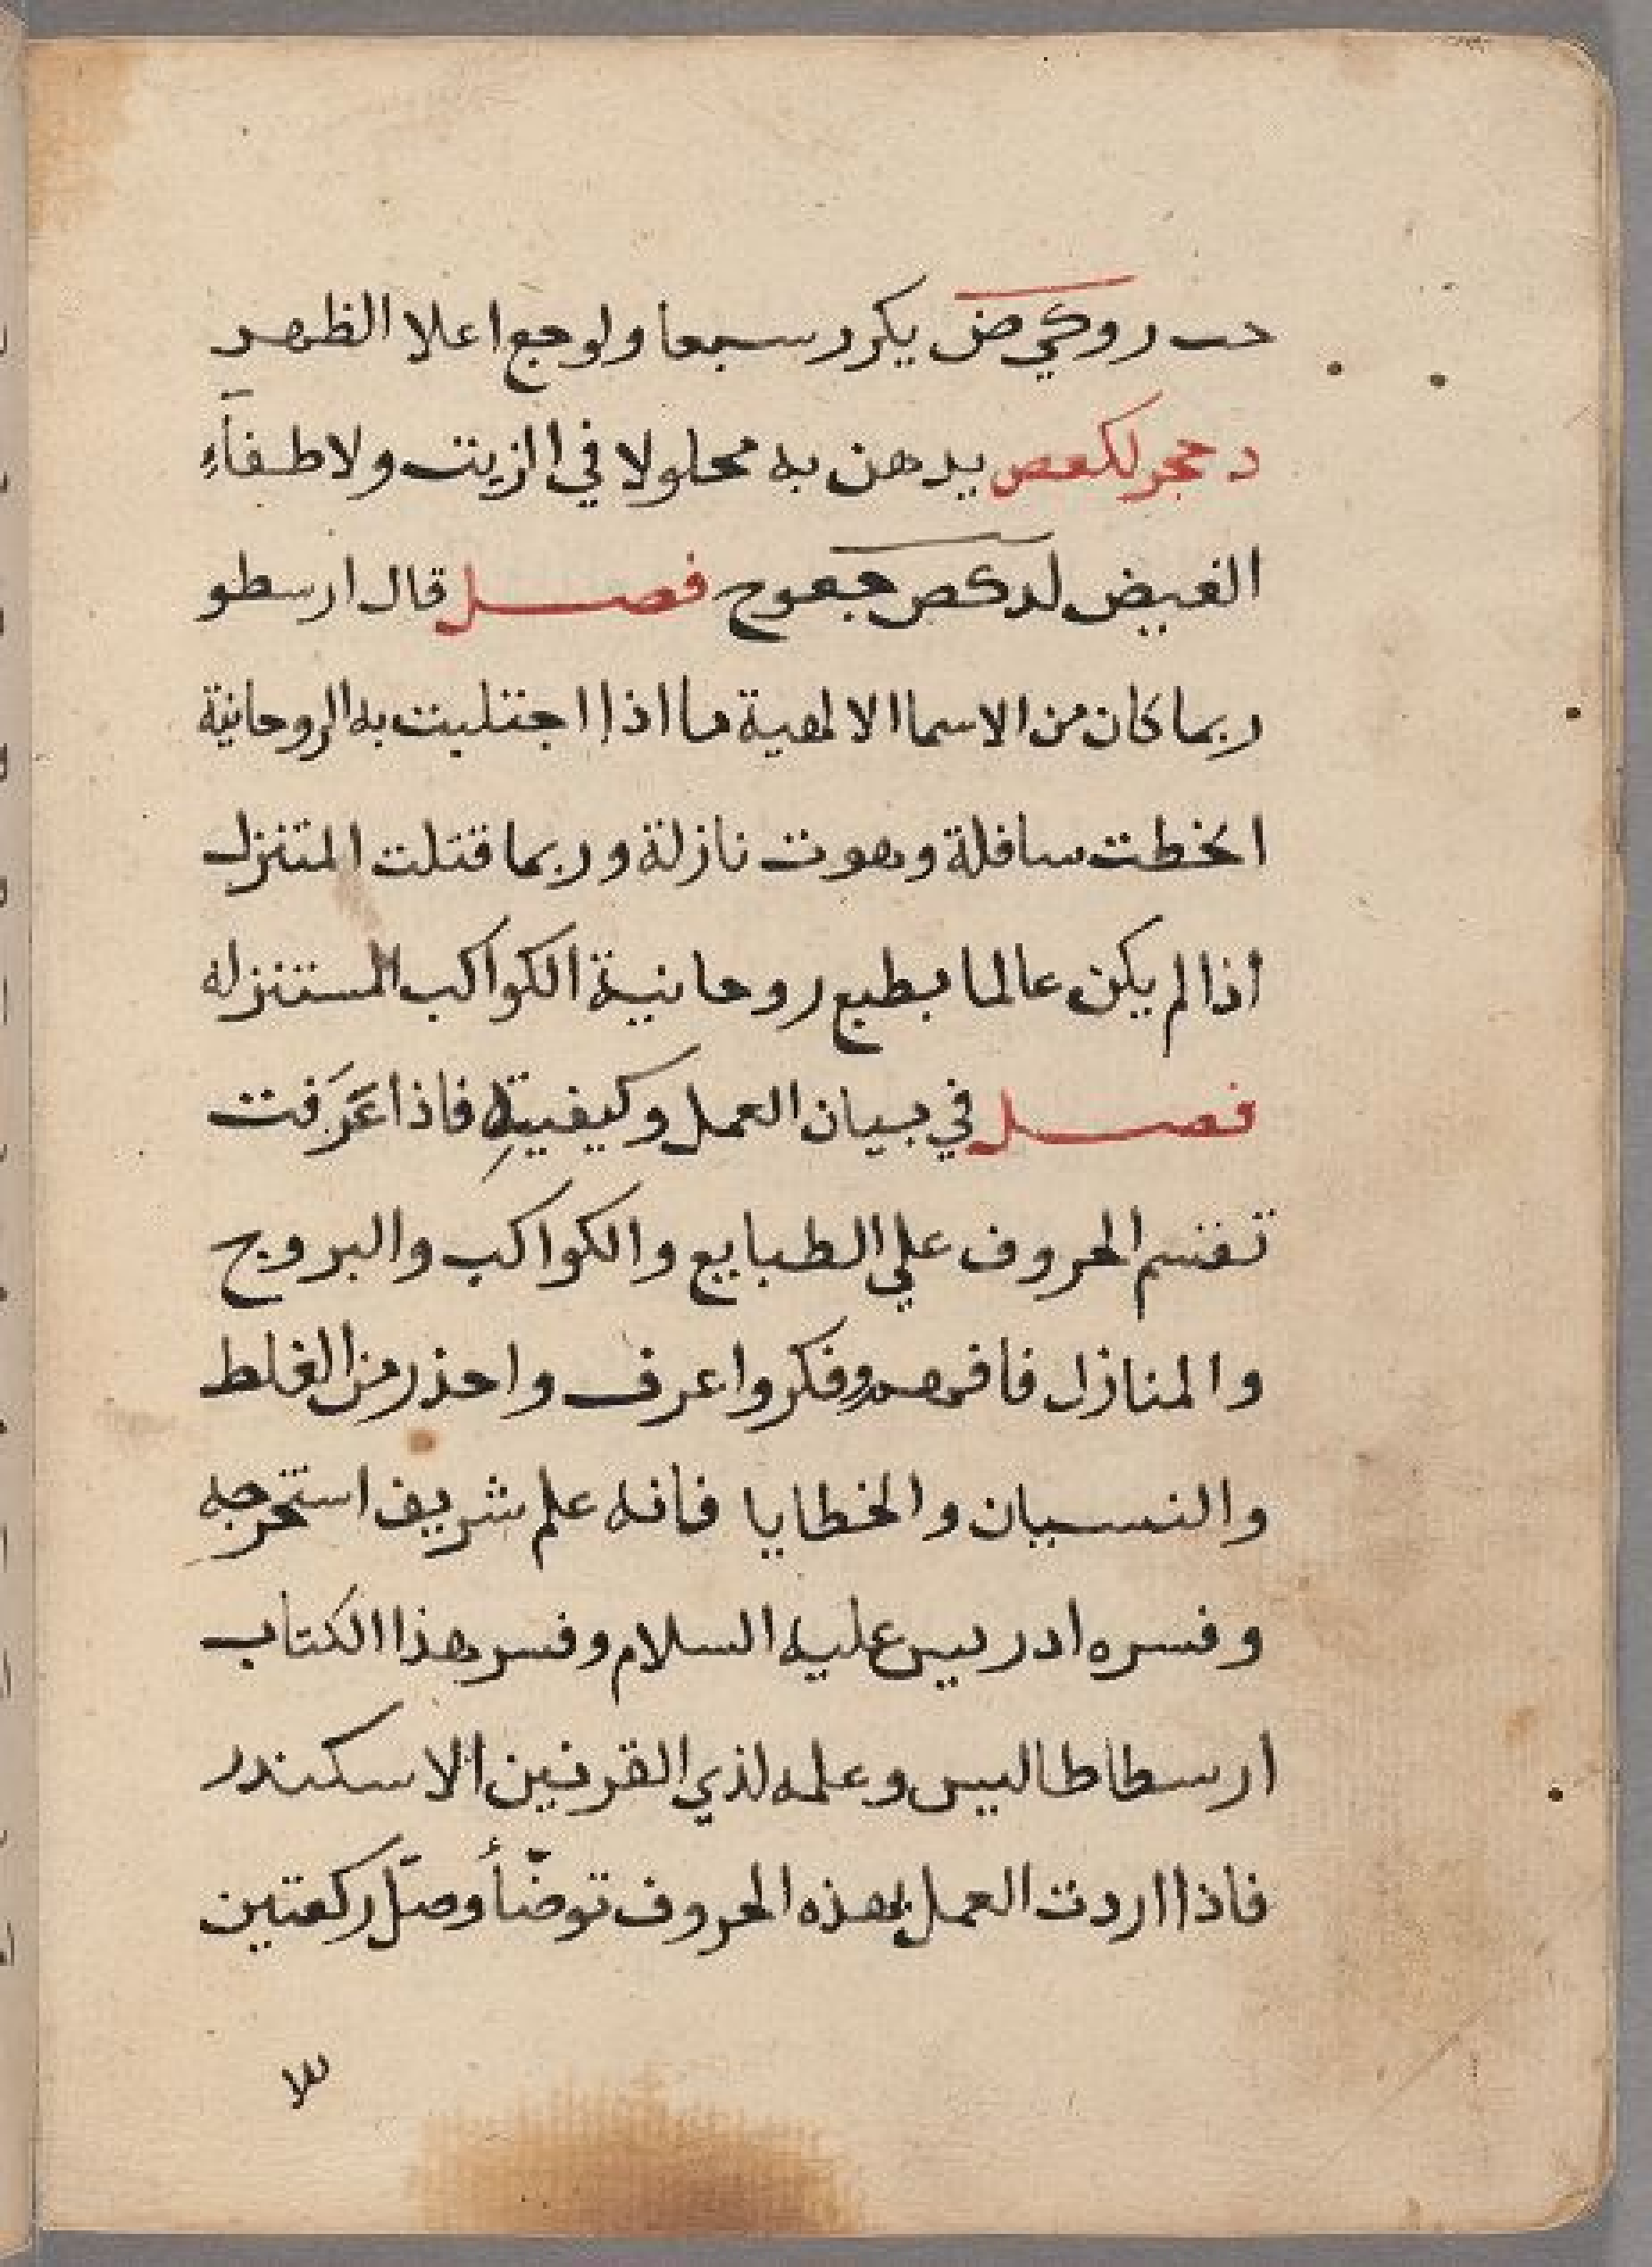 حب روكي ض يكرر سبعا ولوجع اعلا الظهر
د حجر لكعص يدهن به محلولا في الزيت ولاطفآءِ
الغيض لدكص جعوح فصل قال ارسطو
ربما كان من الاسما الالهية ما اذا اجتلبت به الروحانية
انحطت سافلة وهوت نازلة وربما قتلت المتنزل
اذا لم يكن عالما بطبع روحانية الكواكب المستنزله
فصل في بيان العمل وكيفيتهِ فاذا عَرَفت
تقسم الحروف علي الطبايع والكواكب والبروج
والمنازل فافهم وفكر واعرف واحذر من الغلط
والنسيان والخطايا فانه علم شريف استخرجه
وفسره ادريس عليه السلام وفسر هذا الكتاب
ارسطاطاليس وعلمه لذي القرنين الاسكندر
فاذا اردت العمل بهذه الحروف توضّأ وصَل ركعتين